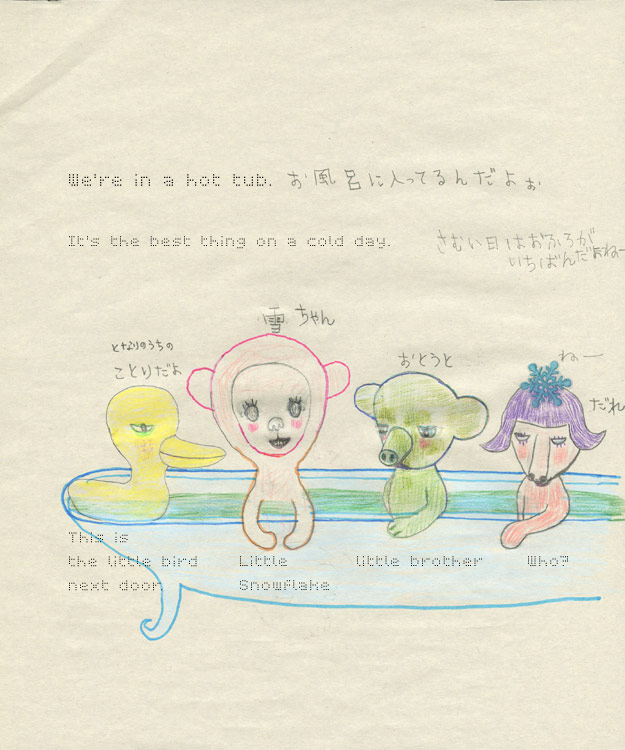 We're in a hot tub. お風呂に入ってるんだよぉ
It's the best thing on a cold day. さむい日はおふろが
いちばんだよねー
雪ちゃん
となりのうちの
ことりだよ
おとうと
ねー
だれ
This is
the little bird
next door.
Little
Snowflake
little brother
Who?